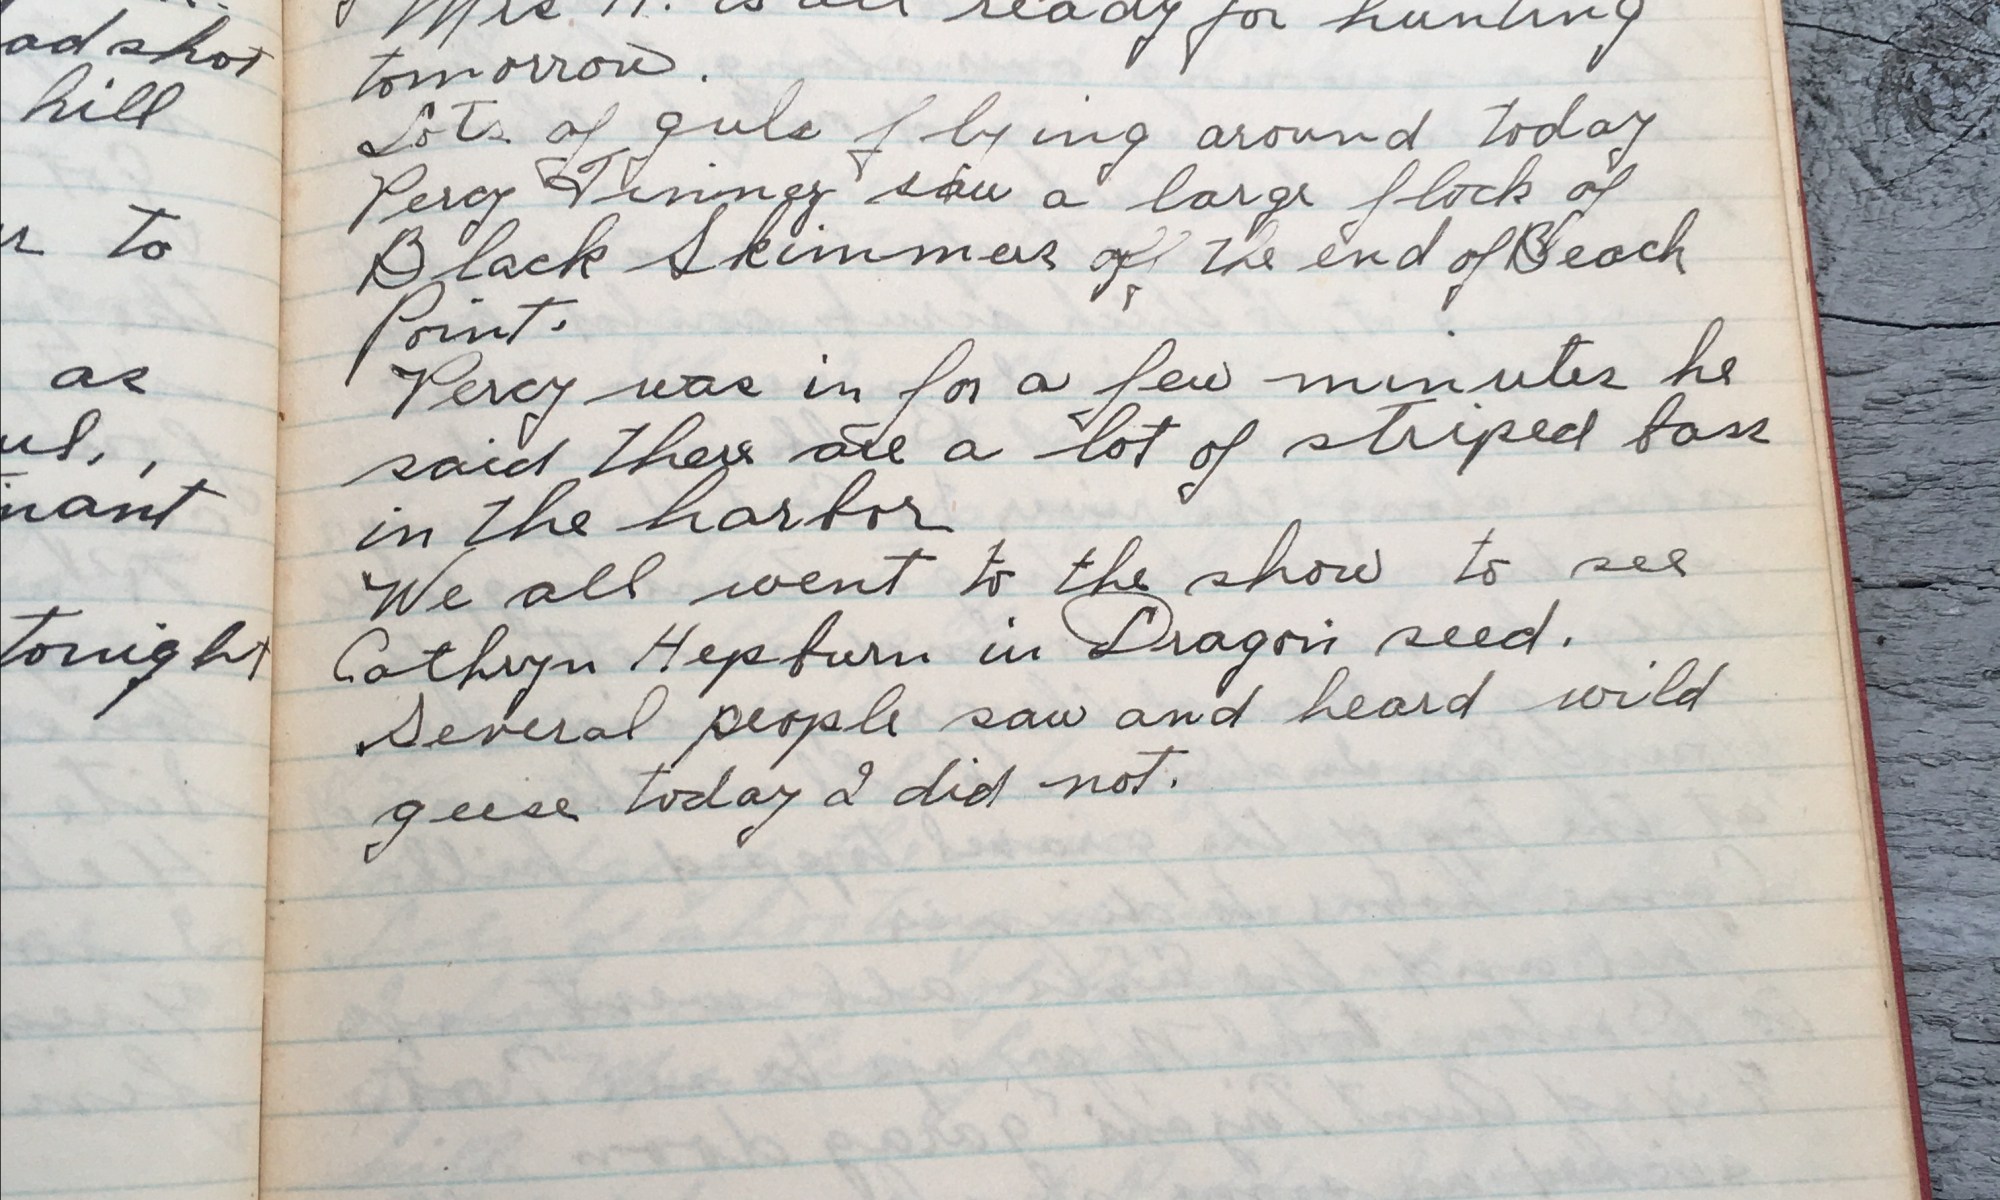 adshot
hill
to
as
nant
tonight
Mrs H. is all ready for hunting
tomorrow.
Lots of guls flying around today
Percy Tinney saw a large flock of
Black Skimmers of the end of Beach
Point.
Percy was in for a few minutes he
said there are a lot of striped bass
in the harbor
We all went to the show to see
Cathryn Hepburn in Dragon seed.
Several people saw and heard wild
geese today I did not.